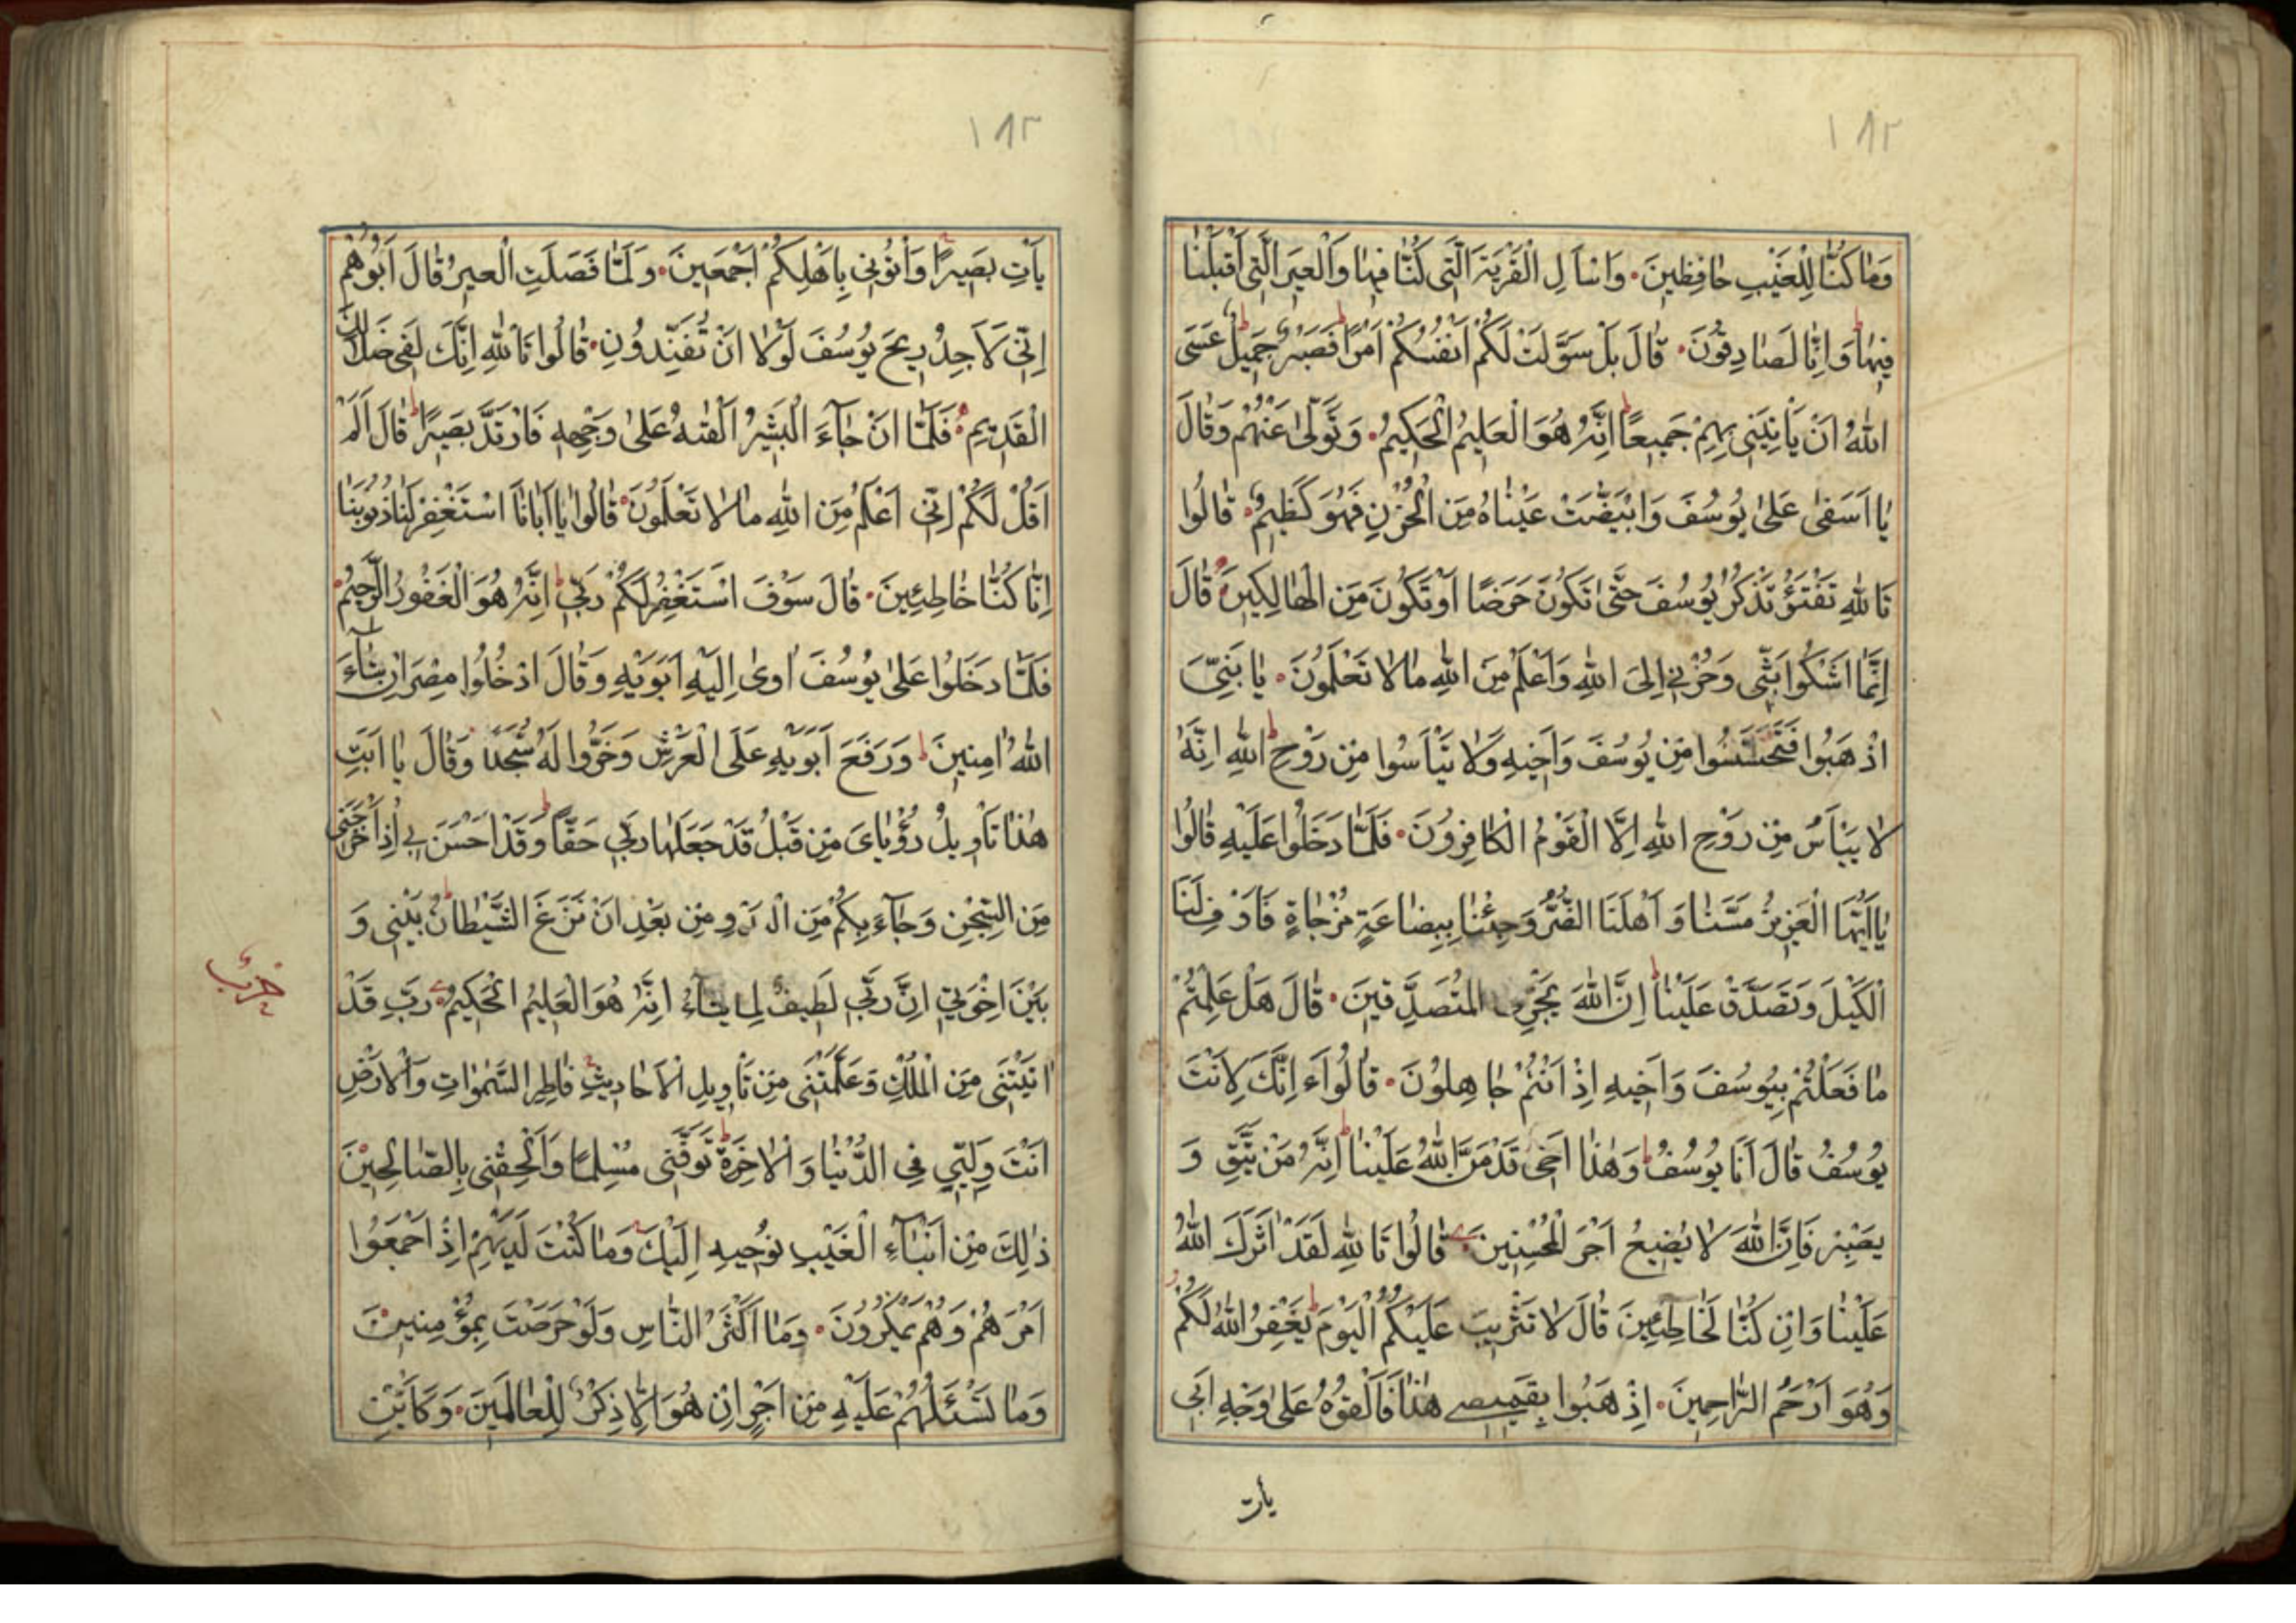 ١٨٢
وَمَا كُنَّا لِلْغَيْبِ حَافِظِينَ وَاسْأَلِ الْقَرْيَةَ الَّتِي كُنَّا فِيهَا وَالْعِيرَ الَّتِي أَقْبَلْنَا
فِيهَا وَاِنَّا لَصَادِقُونَ قَالَ بَلْ سَوَّلَتْ لَكُمْ اَنْفُسُكُمْ اَمْرًا فَصَبْرٌ جَمِيلٌ عَسَى
اللهُ اَنْ يَأْتِيَنِي بِهِمْ جَمِيعًا اِنَّهُ هُوَ الْعَلِيمُ الْحَكِيمُ وَتَوَلّٰى عَنْهُمْ وَقَالَ
يَا اَسَفٰى عَلٰى يُوسُفَ وَابْيَضَّتْ عَيْنَاهُ مِنَ الْحُزْنِ فَهُوَ كَظِيمٌ قَالُوا
تَاللهِ تَفْتَؤُ تَذْكُرُ يُوسُفَ حَتّٰى تَكُونَ حَرَضًا اَوْ تَكُونَ مِنَ الْهَالِكِينَ قَالَ
اِنَّمَا اَشْكُوا بَثّي وَحُزْنِي اِلَى اللهِ وَاَعْلَمُ مِنَ اللهِ مَالَا تَعْلَمُونَ يَا بَنِيَّ
اذْهَبُوا فَتَحَسَّسُوا مِنْ يُوسُفَ وَاَخِيهِ وَلَا تَيْأَسُوا مِنْ رَوْحِ اللهِ اِنَّهُ
لَا يَيْأَسُ مِنْ رَوْحِ اللهِ اِلَّا الْقَوْمُ الْكَافِرُونَ فَلَمَّا دَخَلُوا عَلَيْهِ قَالُوا
يَا اَيُّهَا الْعَزِيزُ مَسَّنَا وَاَهْلَنَا الضُّرُّ وَجِئْنَا بِبِضَاعَةٍ مُزْجَاةٍ فَاَوْفِ لَنَا
الْكَيْلَ وَتَصَدَّقْ عَلَيْنَا اِنَّ اللهَ يَجْزِي الْمُتَصَدِّقِينَ قَالَ هَلْ عَلِمْتُمْ
مَا فَعَلْتُمْ بِيُوسُفَ وَاَخِيهِ اِذْ اَنْتُمْ جَاهِلُونَ قَالُوا ءَاِنَّكَ لَاَنْتَ
يُوسُفُ قَالَ اَنَا يُوسُفُ وَهٰذَا اَخِي قَدْ مَنَّ اللهُ عَلَيْنَا اِنَّهُ مَنْ يَتَّقِ وَ
يَصْبِرْ فَاِنَّ اللهَ لَا يُضِيعُ اَجْرَ الْمُحْسِنِينَ قَالُوا تَاللهِ لَقَدْ اٰثَرَكَ اللهُ
عَلَيْنَا وَاِنْ كُنَّا لَخَاطِئِينَ قَالَ لَا تَثْرِيبَ عَلَيْكُمُ الْيَوْمَ يَغْفِرُ اللهُ لَكُمْ
وَهُوَ اَرْحَمُ الرَّاحِمِينَ اِذْهَبُوا بِقَمِيصِي هٰذَا فَاَلْقُوهُ عَلٰى وَجْهِ اَبِي
يأت
١٨٣
يَأْتِ بَصِيرًا وَأْتُونِي بِاَهْلِكُمْ اَجْمَعِينَ وَلَمَّا فَصَلَتِ الْعِيرُ قَالَ اَبُوهُمْ
اِنِّي لَاَجِدُ رِيحَ يُوسُفَ لَوْلَا اَنْ تُفَنِّدُونِ قَالُوا تَاللهِ اِنَّكَ لَفِي ضَلَالِكَ
الْقَدِيمِ فَلَمَّا اَنْ جَآءَ الْبَشِيرُ اَلْقٰيهُ عَلٰى وَجْهِهِ فَارْتَدَّ بَصِيرًا قَالَ اَلَمْ
اَقُلْ لَكُمْ اِنِّي اَعْلَمُ مِنَ اللهِ مَالَا تَعْلَمُونَ قَالُوا يَا اَبَانَا اسْتَغْفِرْ لَنَا ذُنُوبَنَا
اِنَّا كُنَّا خَاطِئِينَ قَالَ سَوْفَ اَسْتَغْفِرُ لَكُمْ رَبِّي اِنَّهُ هُوَ الْغَفُورُ الرَّحِيمُ
فَلَمَّا دَخَلُوا عَلٰى يُوسُفَ اٰوٰى اِلَيْهِ اَبَوَيْهِ وَقَالَ ادْخُلُوا مِصْرَ اِنْ شَآءَ
اللهُ اٰمِنِينَ وَرَفَعَ اَبَوَيْهِ عَلَى الْعَرْشِ وَخَرُّوا لَهُ سُجَّدًا وَقَالَ يَا اَبَتِ
هٰذَا تَأْوِيلُ رُؤْيَايَ مِنْ قَبْلُ قَدْ جَعَلَهَا رَبِّي حَقًّا وَقَدْ اَحْسَنَ بِي اِذْ اَخْرَجَنِي
مِنَ السِّجْنِ وَجَآءَ بِكُمْ مِنَ الْبَدْوِ مِنْ بَعْدِ اَنْ نَزَغَ الشَّيْطَانُ بَيْنِي وَ
بَيْنَ اِخْوَتِي اِنَّ رَبِّي لَطِيفٌ لِمَا يَشَآءُ اِنَّهُ هُوَ الْعَلِيمُ الْحَكِيمُ رَبِّ قَدْ
اٰتَيْتَنِي مِنَ الْمُلْكِ وَعَلَّمْتَنِي مِنْ تَأْوِيلِ الْاَحَادِيثِ فَاطِرَ السَّمٰوَاتِ وَالْاَرْضِ
اَنْتَ وَلِيِّي فِي الدُّنْيَا وَالْاٰخِرَةِ تَوَفَّنِي مُسْلِمًا وَاَلْحِقْنِي بِالصَّالِحِينَ
ذٰلِكَ مِنْ اَنْبَآءِ الْغَيْبِ نُوحِيهِ اِلَيْكَ وَمَا كُنْتَ لَدَيْهِمْ اِذْ اَجْمَعُوا
اَمْرَهُمْ وَهُمْ يَمْكُرُونَ وَمَا اَكْثَرُ النَّاسِ وَلَوْ حَرَصْتَ بِمُؤْمِنِينَ
وَمَا تَسْئَلُهُمْ عَلَيْهِ مِنْ اَجْرٍ اِنْ هُوَ اِلَّا ذِكْرٌ لِلْعَالَمِينَ وَكَاَيِّنْ
حزب